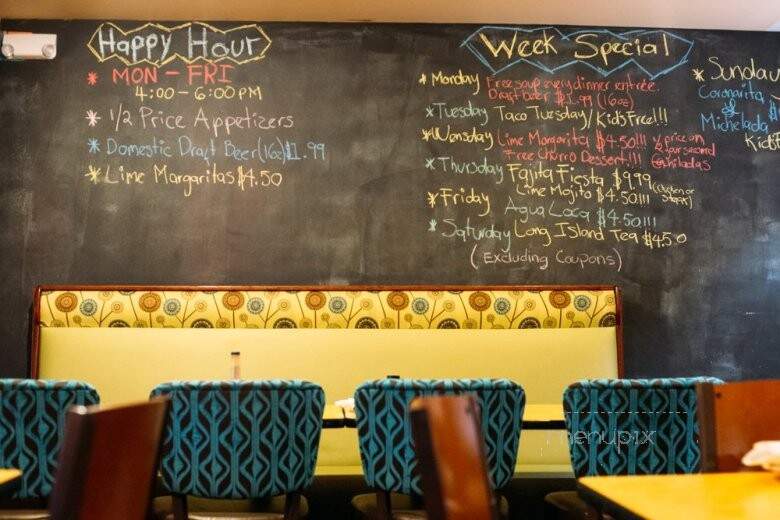 Happy Hour
* MON - FRI
4:00 - 6:00 PM
* 1/2 Price Appetizers
* Domestic Draft Beer (16oz) $1.99
* Lime Margaritas $4.50
Week Special
* Monday Free soup every dinner entrée.
Draft beer $1.99 (16oz)
* Tuesday Taco Tuesday/ Kids Free!!!
* Wensday Lime Margarita $4.50!!! 1/2 price on
Free Churro Dessert!!! your second
Enchiladas
* Thursday Fajita Fiesta $9.99 (chicken or
Lime Mojito $4.50!!! steak)
* Friday Agua Loca $4.50!!!
* Saturday Long Island Tea $4.50
(Excluding Coupons)
* Sunday
Coronarita $
Michelada
Kids
menupix